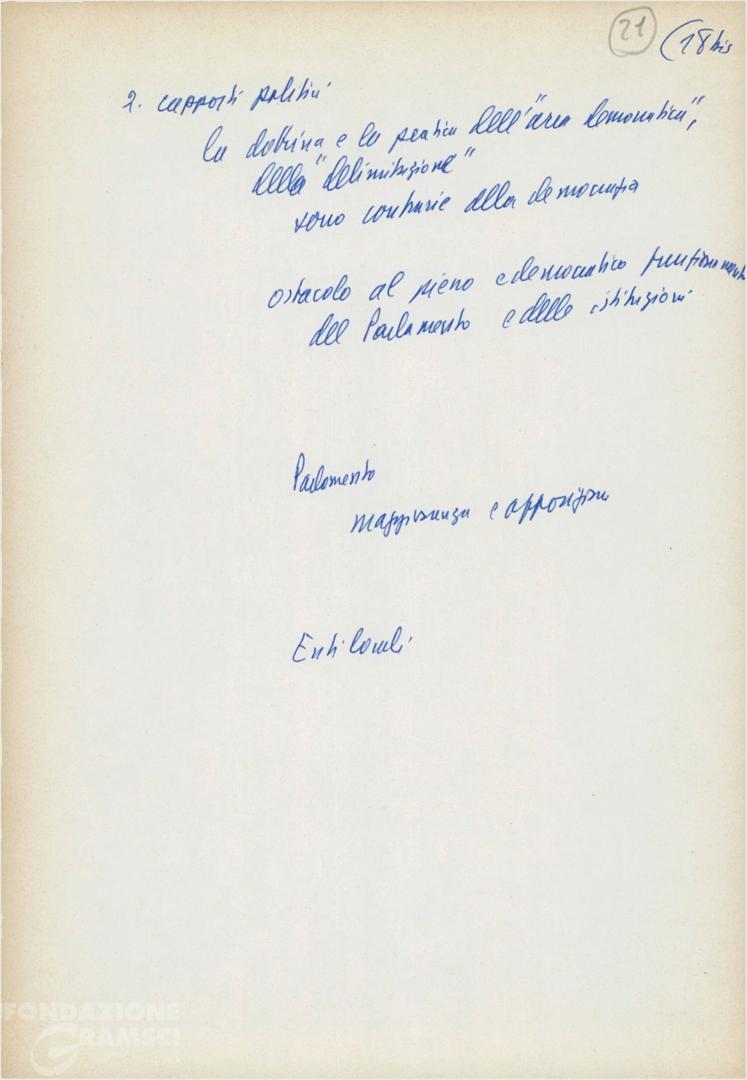 21
(18 bis
2. rapporti politici
la dottrina e la pratica dell'"area democratica",
della "delimitazione"
sono contrarie alla democrazia
ostacolo al pieno e democratico funzionamento
del Parlamento e delle istituzioni
Parlamento
maggioranza e opposizione
Enti locali
FONDAZIONE
GRAMSCI